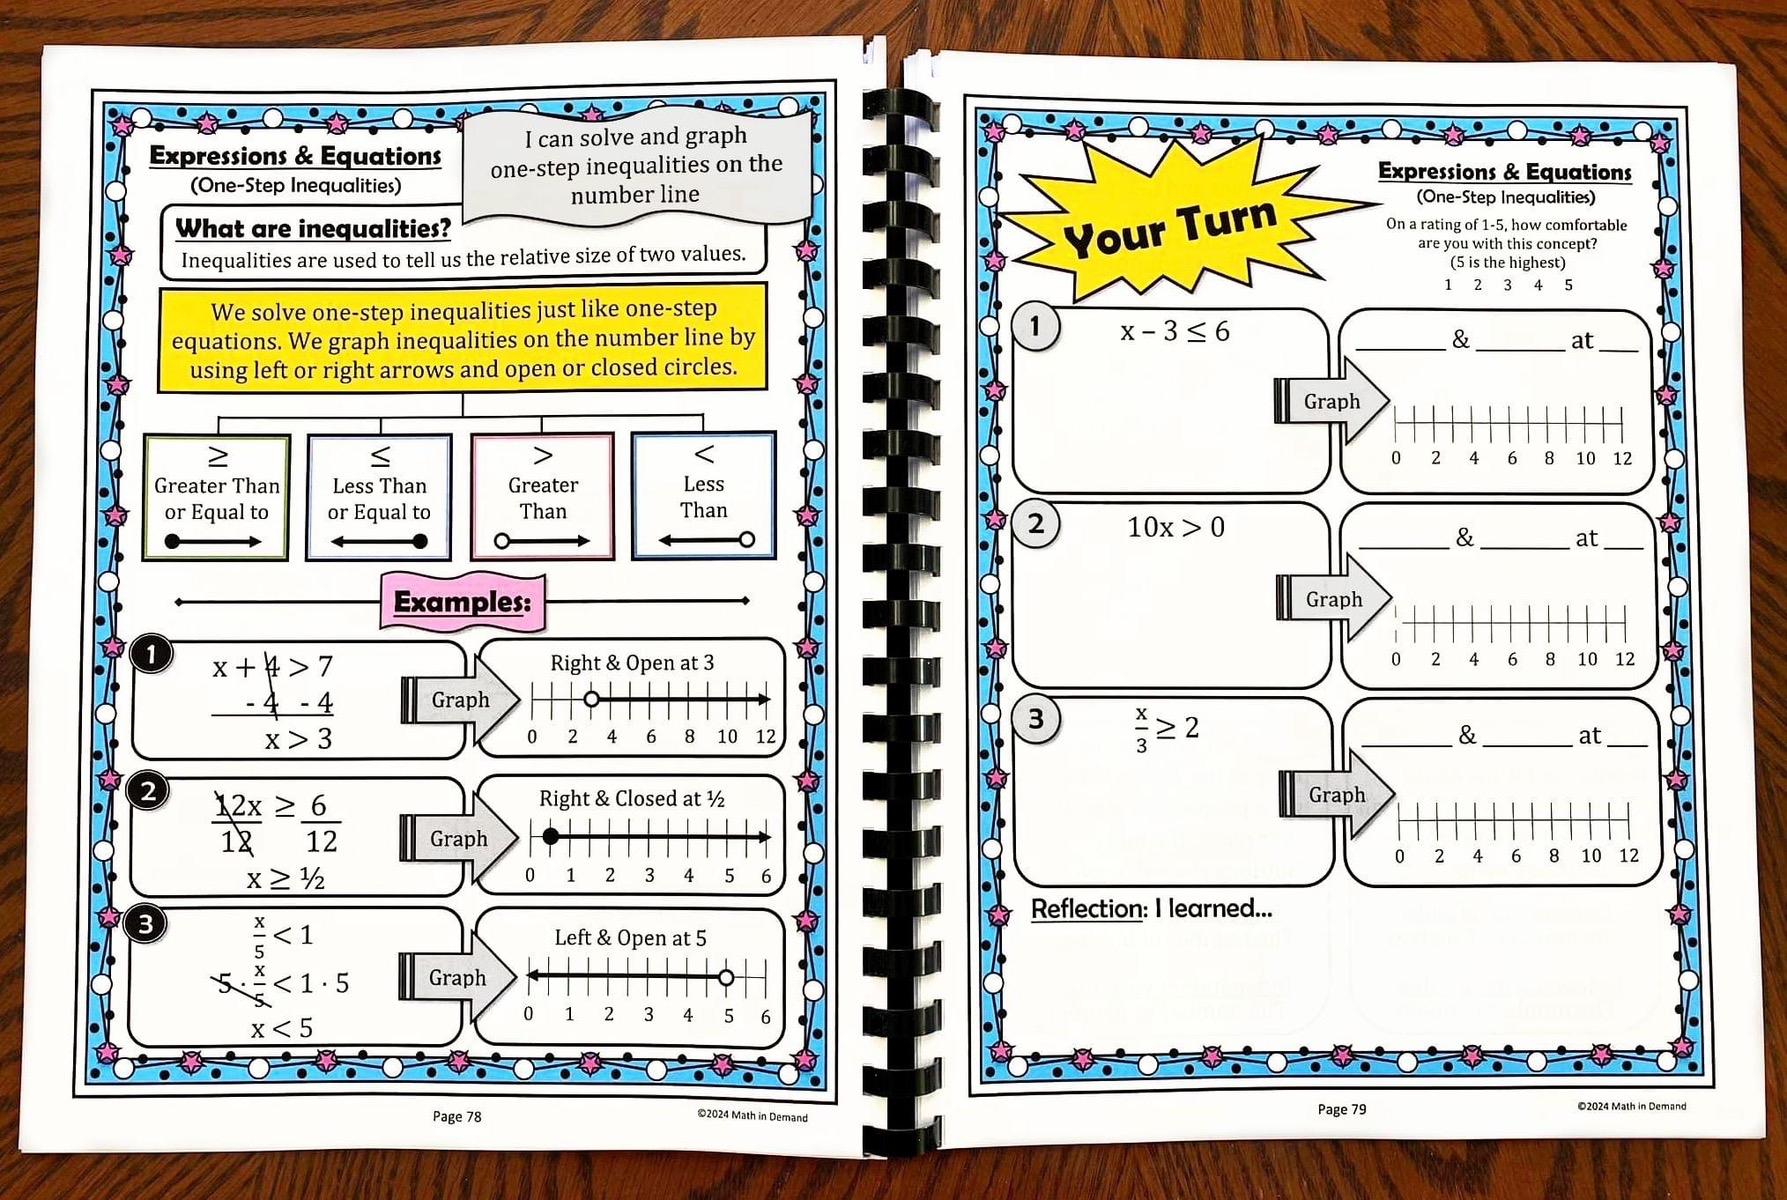 Expressions & Equations
(One-Step Inequalities)
I can solve and graph
one-step inequalities on the
number line
What are inequalities?
Inequalities are used to tell us the relative size of two values.
We solve one-step inequalities just like one-step
equations. We graph inequalities on the number line by
using left or right arrows and open or closed circles.
≥
Greater Than
or Equal to
≤
Less Than
or Equal to
>
Greater
Than
<
Less
Than
Examples:
1
x + 4 > 7
- 4 - 4
x > 3
Graph
Right & Open at 3
0 2 4 6 8 10 12
2
12x ≥ 6
12 12
x ≥ ½
Graph
Right & Closed at ½
0 1 2 3 4 5 6
3
x/5 < 1
5 · x/5 < 1 · 5
x < 5
Graph
Left & Open at 5
0 1 2 3 4 5 6
Page 78
©2024 Math in Demand
Your Turn
Expressions & Equations
(One-Step Inequalities)
On a rating of 1-5, how comfortable
are you with this concept?
(5 is the highest)
1 2 3 4 5
1
x – 3 ≤ 6
Graph
______ & ______ at ___
0 2 4 6 8 10 12
2
10x > 0
Graph
______ & ______ at ___
0 2 4 6 8 10 12
3
x/3 ≥ 2
Graph
______ & ______ at ___
0 2 4 6 8 10 12
Reflection: I learned...
Page 79
©2024 Math in Demand